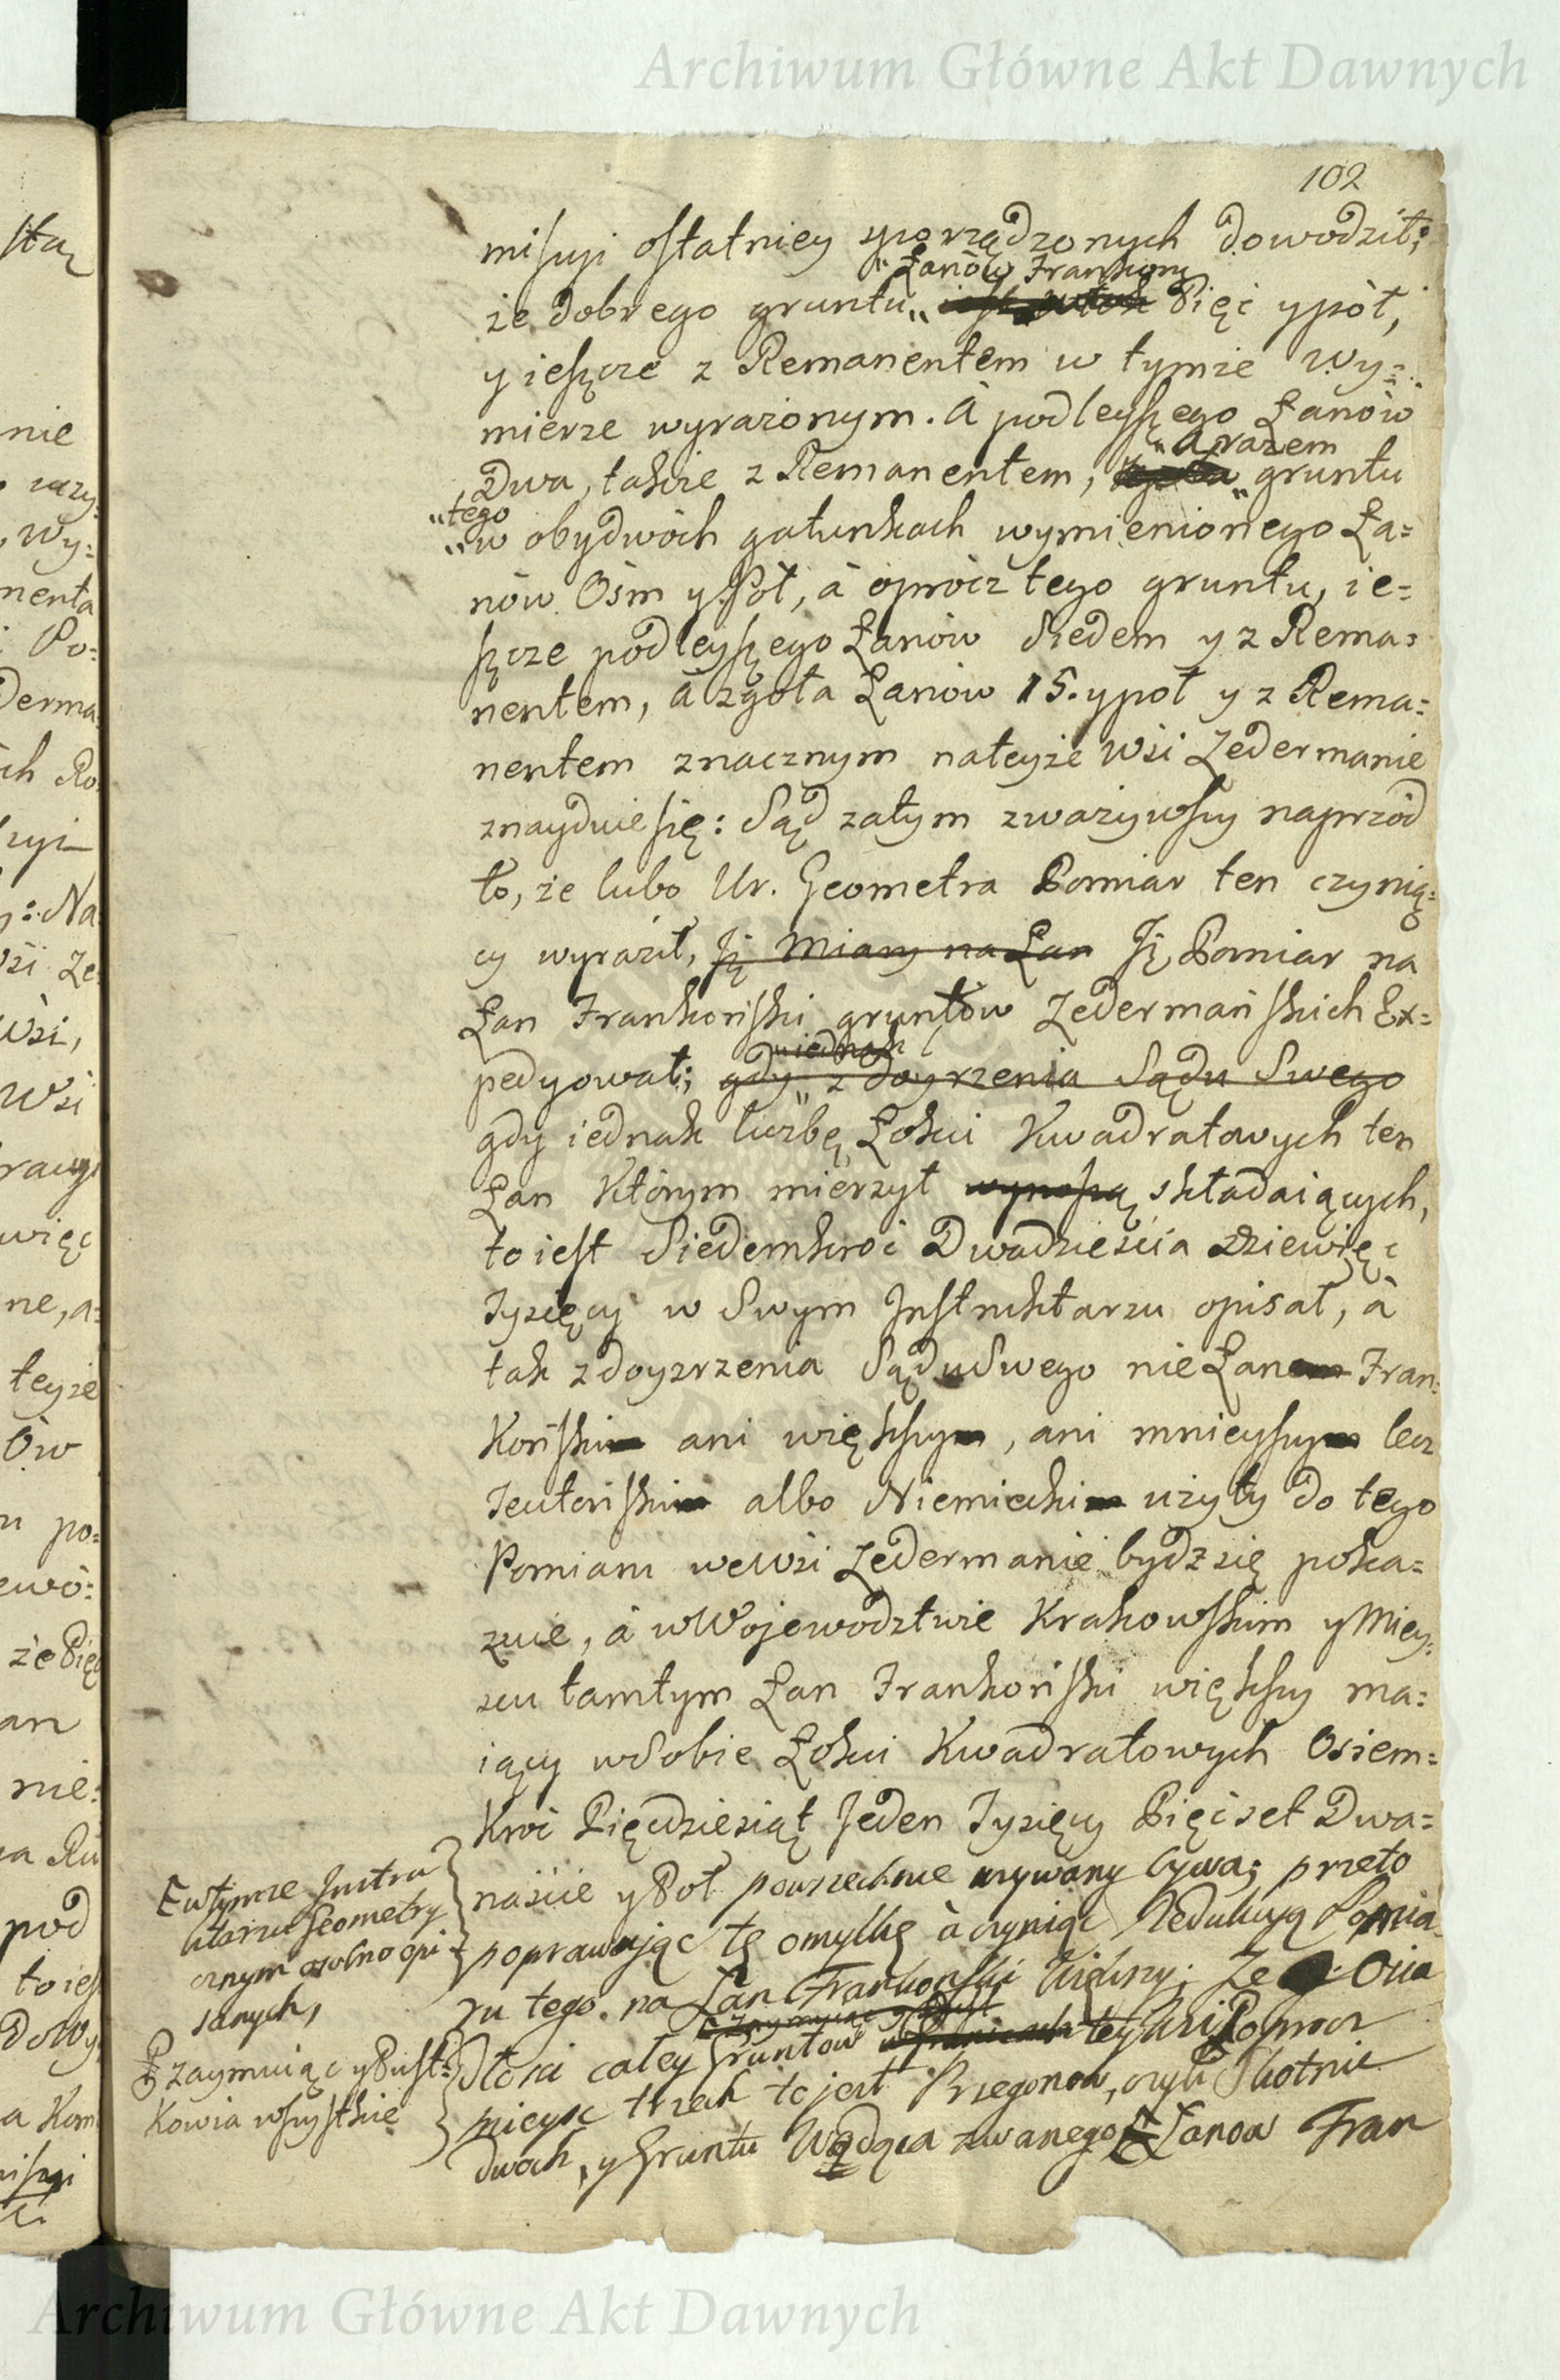 Archiwum Główne Akt Dawnych
102
missyi ostatniey sporządzonych dowodził;
"Łanów Frankony
że dobrego gruntu „ Pięć y pół,
y ieszcze z Remanentem w tymże Wy=
mierze wyrażonym. à podleyszego Łanów
"à razem
Dwa, także z Remanentem, „ gruntu
"tego
„w obydwóch gatunkach wymienionego Ła=
nów Ośm y Pół, à oprócz tego gruntu, ie=
szcze podleyszego Łanów Siedem y z Rema=
nentem, à zgoła Łanów 15. y poł y z Rema=
nentem znacznym nateyże Wsi Zedermanie
znayduie się: Sąd zatym zważywszy naprzód
to, że lubo Ur. Geometra Pomiar ten czynią=
cy wyraził, Jż Miary na Łan Jż Pomiar na
Łan Frankoński gruntów Zedermańskich Ex=
"iednak
pedyował; gdy „ z doyrzenia Sądu Swego
gdy iednak liczbę Łokci Kwadratowych ten
Łan Którym mierzył wynoszą składaiących,
to iest Siedemkroć Dwadzieścia Dziewięć
Tysięcy w Swym Jnstruktarzu opisał, à
tak z doyzrzenia Sądu Swego nie Łanem Fran=
Końskim ani większym, ani mnieyszym lecz
Teutońskim albo Niemieckim użyty do tego
Pomiaru we Wsi Zedermanie bydź się poka=
zuie, à w Wojewodztwie Krakowskim y Miey=
scu tamtym Łan Frankoński większy ma=
iący w Sobie Łokci Kwadratowych Osiem=
Kroć Pięćdziesiąt Jeden Tysięcy Pięćset Dwa=
naście y Poł powszechnie używany bywa; przeto
poprawując tę omyłkę à czyniąc Redukcyą Pomia
ru tego. na Łan Frankoński Większy; Ze Osia
Zaymuiąc y Pust
dłości całey Gruntów w Granicach tey Wsi oprocz
mieysc trzech to jest Przegonow, czyli Skotnic
dwoch, y Gruntu Wądąca zwanego Łanow Fran
w tymże Jnstru
ktarzu Geometry
cznym osobno opi
sanych,
zaymuiąc y Pust=
Kowia wszystkie
Archiwum Główne Akt Dawnych